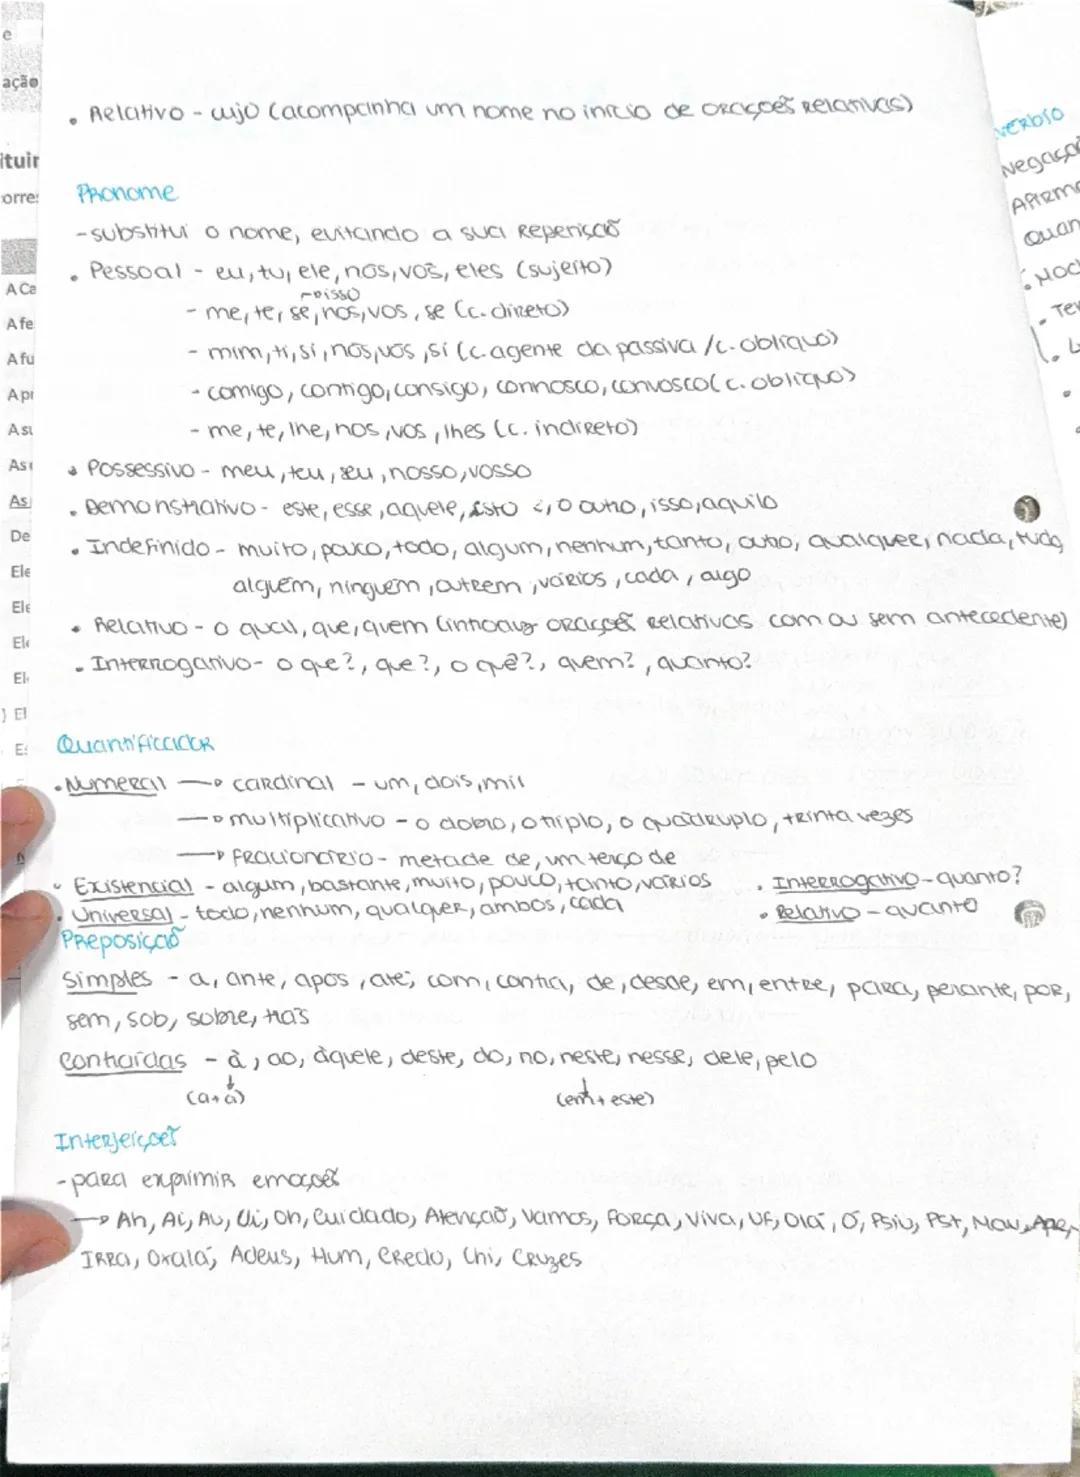 • Relativo - cujo (acompanha um nome no início de orações relativas)
Pronome
- substitui o nome, evitando a sua repetição
• Pessoal - eu, tu, ele, nós, vós, eles (sujeito)
- me, te, se, nos, vos, se (c. direto)
- mim, ti, si, nós, vós, si (c. agente da passiva / c. oblíquo)
- comigo, contigo, consigo, connosco, convosco (c. oblíquo)
- me, te, lhe, nos, vos, lhes (c. indireto)
• Possessivo - meu, teu, seu, nosso, vosso
• Demonstrativo - este, esse, aquele, isto, o outro, isso, aquilo
• Indefinido - muito, pouco, todo, algum, nenhum, tanto, outro, qualquer, nada, tudo,
alguém, ninguém, outrem, vários, cada, algo
• Relativo - o qual, que, quem (introduz orações relativas com ou sem antecedente)
• Interrogativo - o que?, que?, o quê?, quem?, quanto?
Quantificador
• Numeral → cardinal - um, dois, mil
→ multiplicativo - o dobro, o triplo, o quádruplo, trinta vezes
→ fracionário - metade de, um terço de
• Existencial - algum, bastante, muito, pouco, tanto, vários
• Interrogativo - quanto?
• Universal - todo, nenhum, qualquer, ambos, cada
• Relativo - quanto
Preposição
Simples - a, ante, após, até, com, contra, de, desde, em, entre, para, perante, por,
sem, sob, sobre, trás
Contraídas - à, ao, àquele, deste, do, no, neste, nesse, dele, pelo
(a+a) (em+este)
Interjeições
- para exprimir emoções
→ Ah, Ai, Au, Ui, Oh, Cuidado, Atenção, Vamos, Força, Viva, Uf, Olá, Ó, Psiu, Pst, Mau,
Irra, Oxalá, Adeus, Hum, Credo, Chi, Cruzes